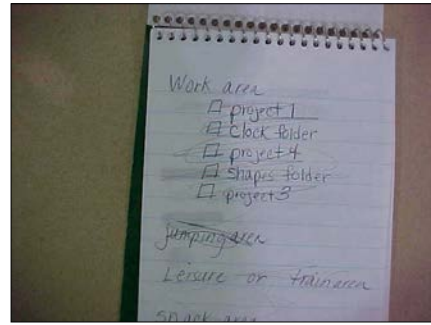 Work area
project 1
Clock folder
project 4
Shapes folder
project 3
jumping area
Leisure or train area
snack area